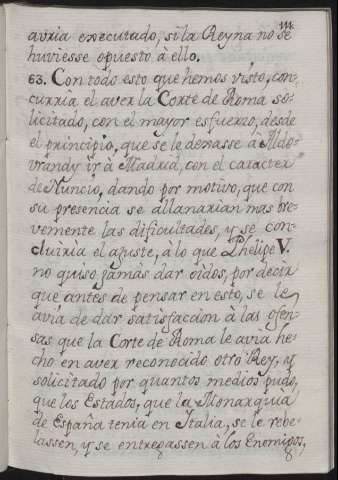 111.
avria executado, si la Reyna no se
huviesse opuesto à ello.
63. Con todo esto que hemos visto, con-
curria el aver la Corte de Roma so-
licitado, con el mayor esfuerzo, desde
el principio, que se le dexasse à Aldo-
vrandy ir à Madrid, con el caracter
de Nuncio, dando por motivo, que con
su presencia se allanarian mas bre-
vemente las dificultades, y se con-
cluiria el ajuste, à lo que Phelipe V.
no quiso jamàs dar oidos, por decir
que antes de pensar en esto, se le
avia de dar satisfaccion à las ofen-
sas que la Corte de Roma le avia he-
cho en aver reconocido otro Rey, y
solicitado por quantos medios pudo,
que los Estados, que la Monarquià
de España tenia en Italia, se le rebe-
lassen, y se entregassen à los Enemigos,